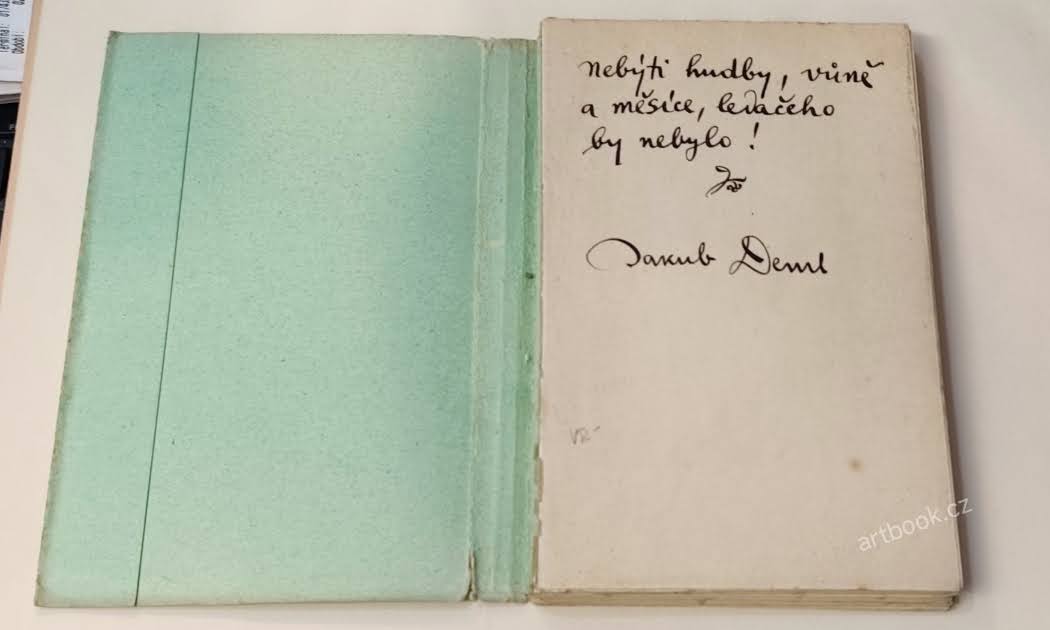 Nebýti hudby, vůně
a měsíce, ledačeho
by nebylo!
Jakub Deml
artbook.cz